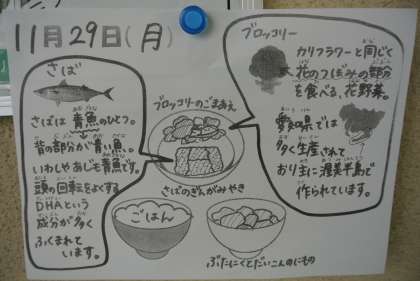 11月29日(月)
さば
さばは青魚のひとつ。
背の部分が青い魚。
いわしやあじも青魚です。
頭の回転をよくする
DHAという
成分が多く
ふくまれて
います。
ブロッコリーのごまあえ
さばのぎんがみやき
ごはん
ぶたにくとだいこんのにもの
ブロッコリー
カリフラワーと同じく
花のつぼみの部分
を食べる、花野菜。
愛知県では
多く生産されて
おり主に渥美半島で
作られています。